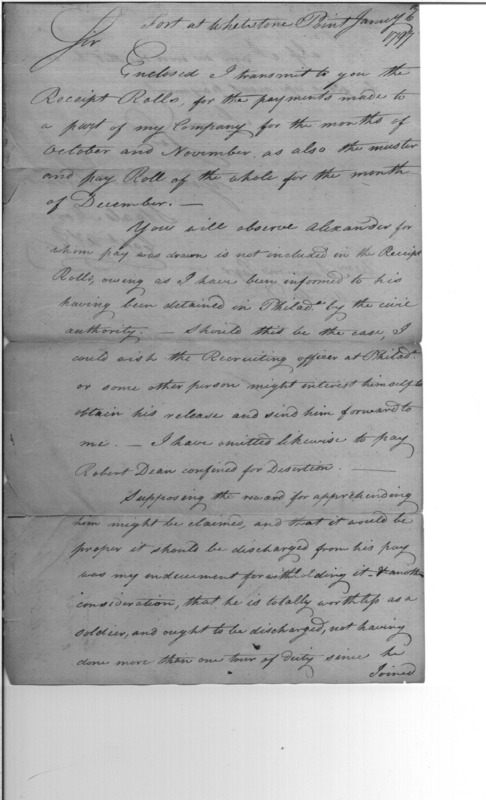 Fort at Whetstone Point Januy 6th
1797
Sir
Enclosed I transmit to you the
Receipt Rolls, for the payments made to
a part of my Company for the months of
October and November, as also the muster
and pay Roll of the whole for the month
of December. —
You will observe Alexander for
whom pay was drawn is not included in the Receipt
Rolls, owing as I have been informed to his
having been detained in Philada by the civic
authority. — Should this be the case, I
could wish the Recruiting officer at Philada
or some other person might interest himself to
obtain his release and send him forward to
me. — I have omitted likewise to pay
Robert Dean confined for Desertion. —
Supposing the reward for apprehending
him might be claimed, and that it would be
proper it should be discharged from his pay
was my inducement for withholding it — & another
consideration, that he is totally worthless as a
soldier, and ought to be discharged, not having
done more than one tour of duty since he
Joined